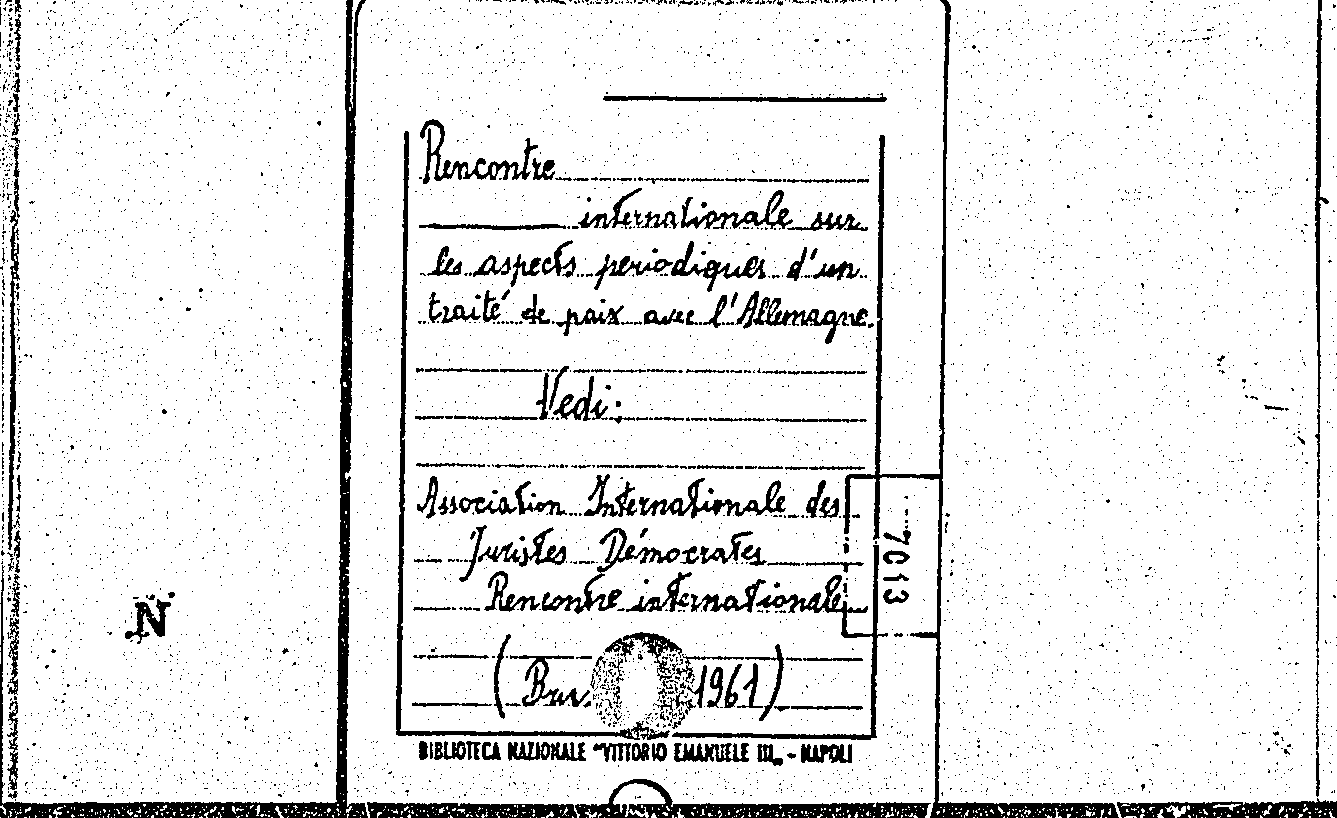 Rencontre
internationale sur
les aspects periodiques d'un
traité de paix avec l'Allemagne.
Vedi:
Association Internationale des
Juristes Démocrates
Rencontre internationale
( 1961)
7013
N
BIBLIOTECA NAZIONALE "VITTORIO EMANUELE III„ - NAPOLI